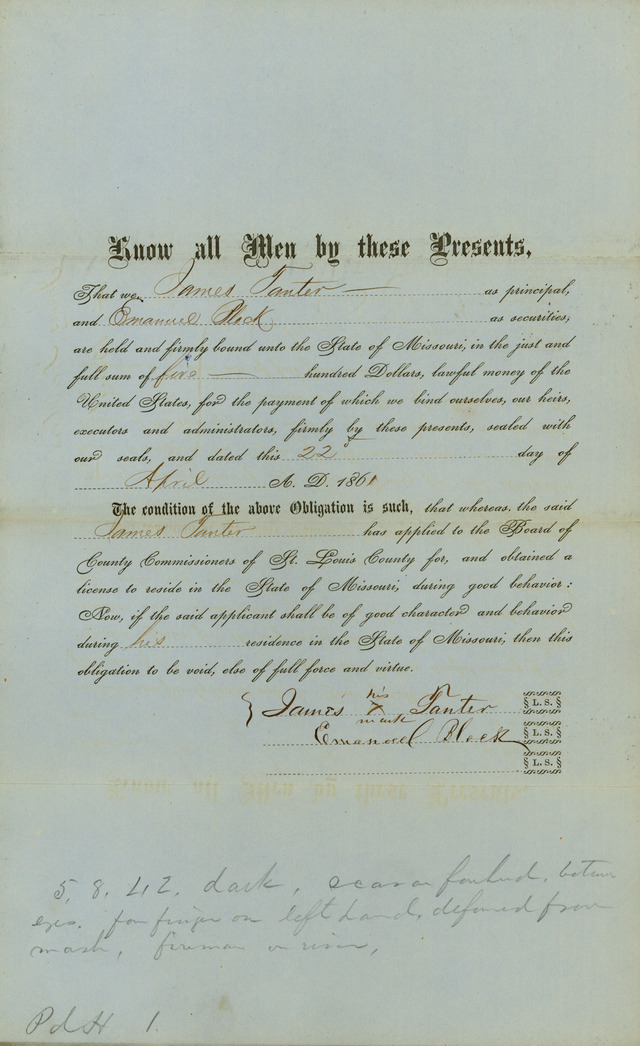 Know all Men by these Presents,
That we, James Tanter — as principal,
and Emanuel Block as securities,
are held and firmly bound unto the State of Missouri, in the just and
full sum of five — hundred Dollars, lawful money of the
United States, for the payment of which we bind ourselves, our heirs,
executors and administrators, firmly by these presents, sealed with
our seals, and dated this 22d day of
April A. D. 1861
The condition of the above Obligation is such, that whereas, the said
James Tanter has applied to the Board of
County Commissioners of St. Louis County for, and obtained a
license to reside in the State of Missouri, during good behavior:
Now, if the said applicant shall be of good character and behavior
during his residence in the State of Missouri, then this
obligation to be void, else of full force and virtue.
James his X mark Tanter L. S.
Emanuel Block L. S.
L. S.
5, 8. 42. dark, scar on forhed. betwen
eyes. for finger on left hand, deformed from
mash, fireman on river,
Pd H 1.